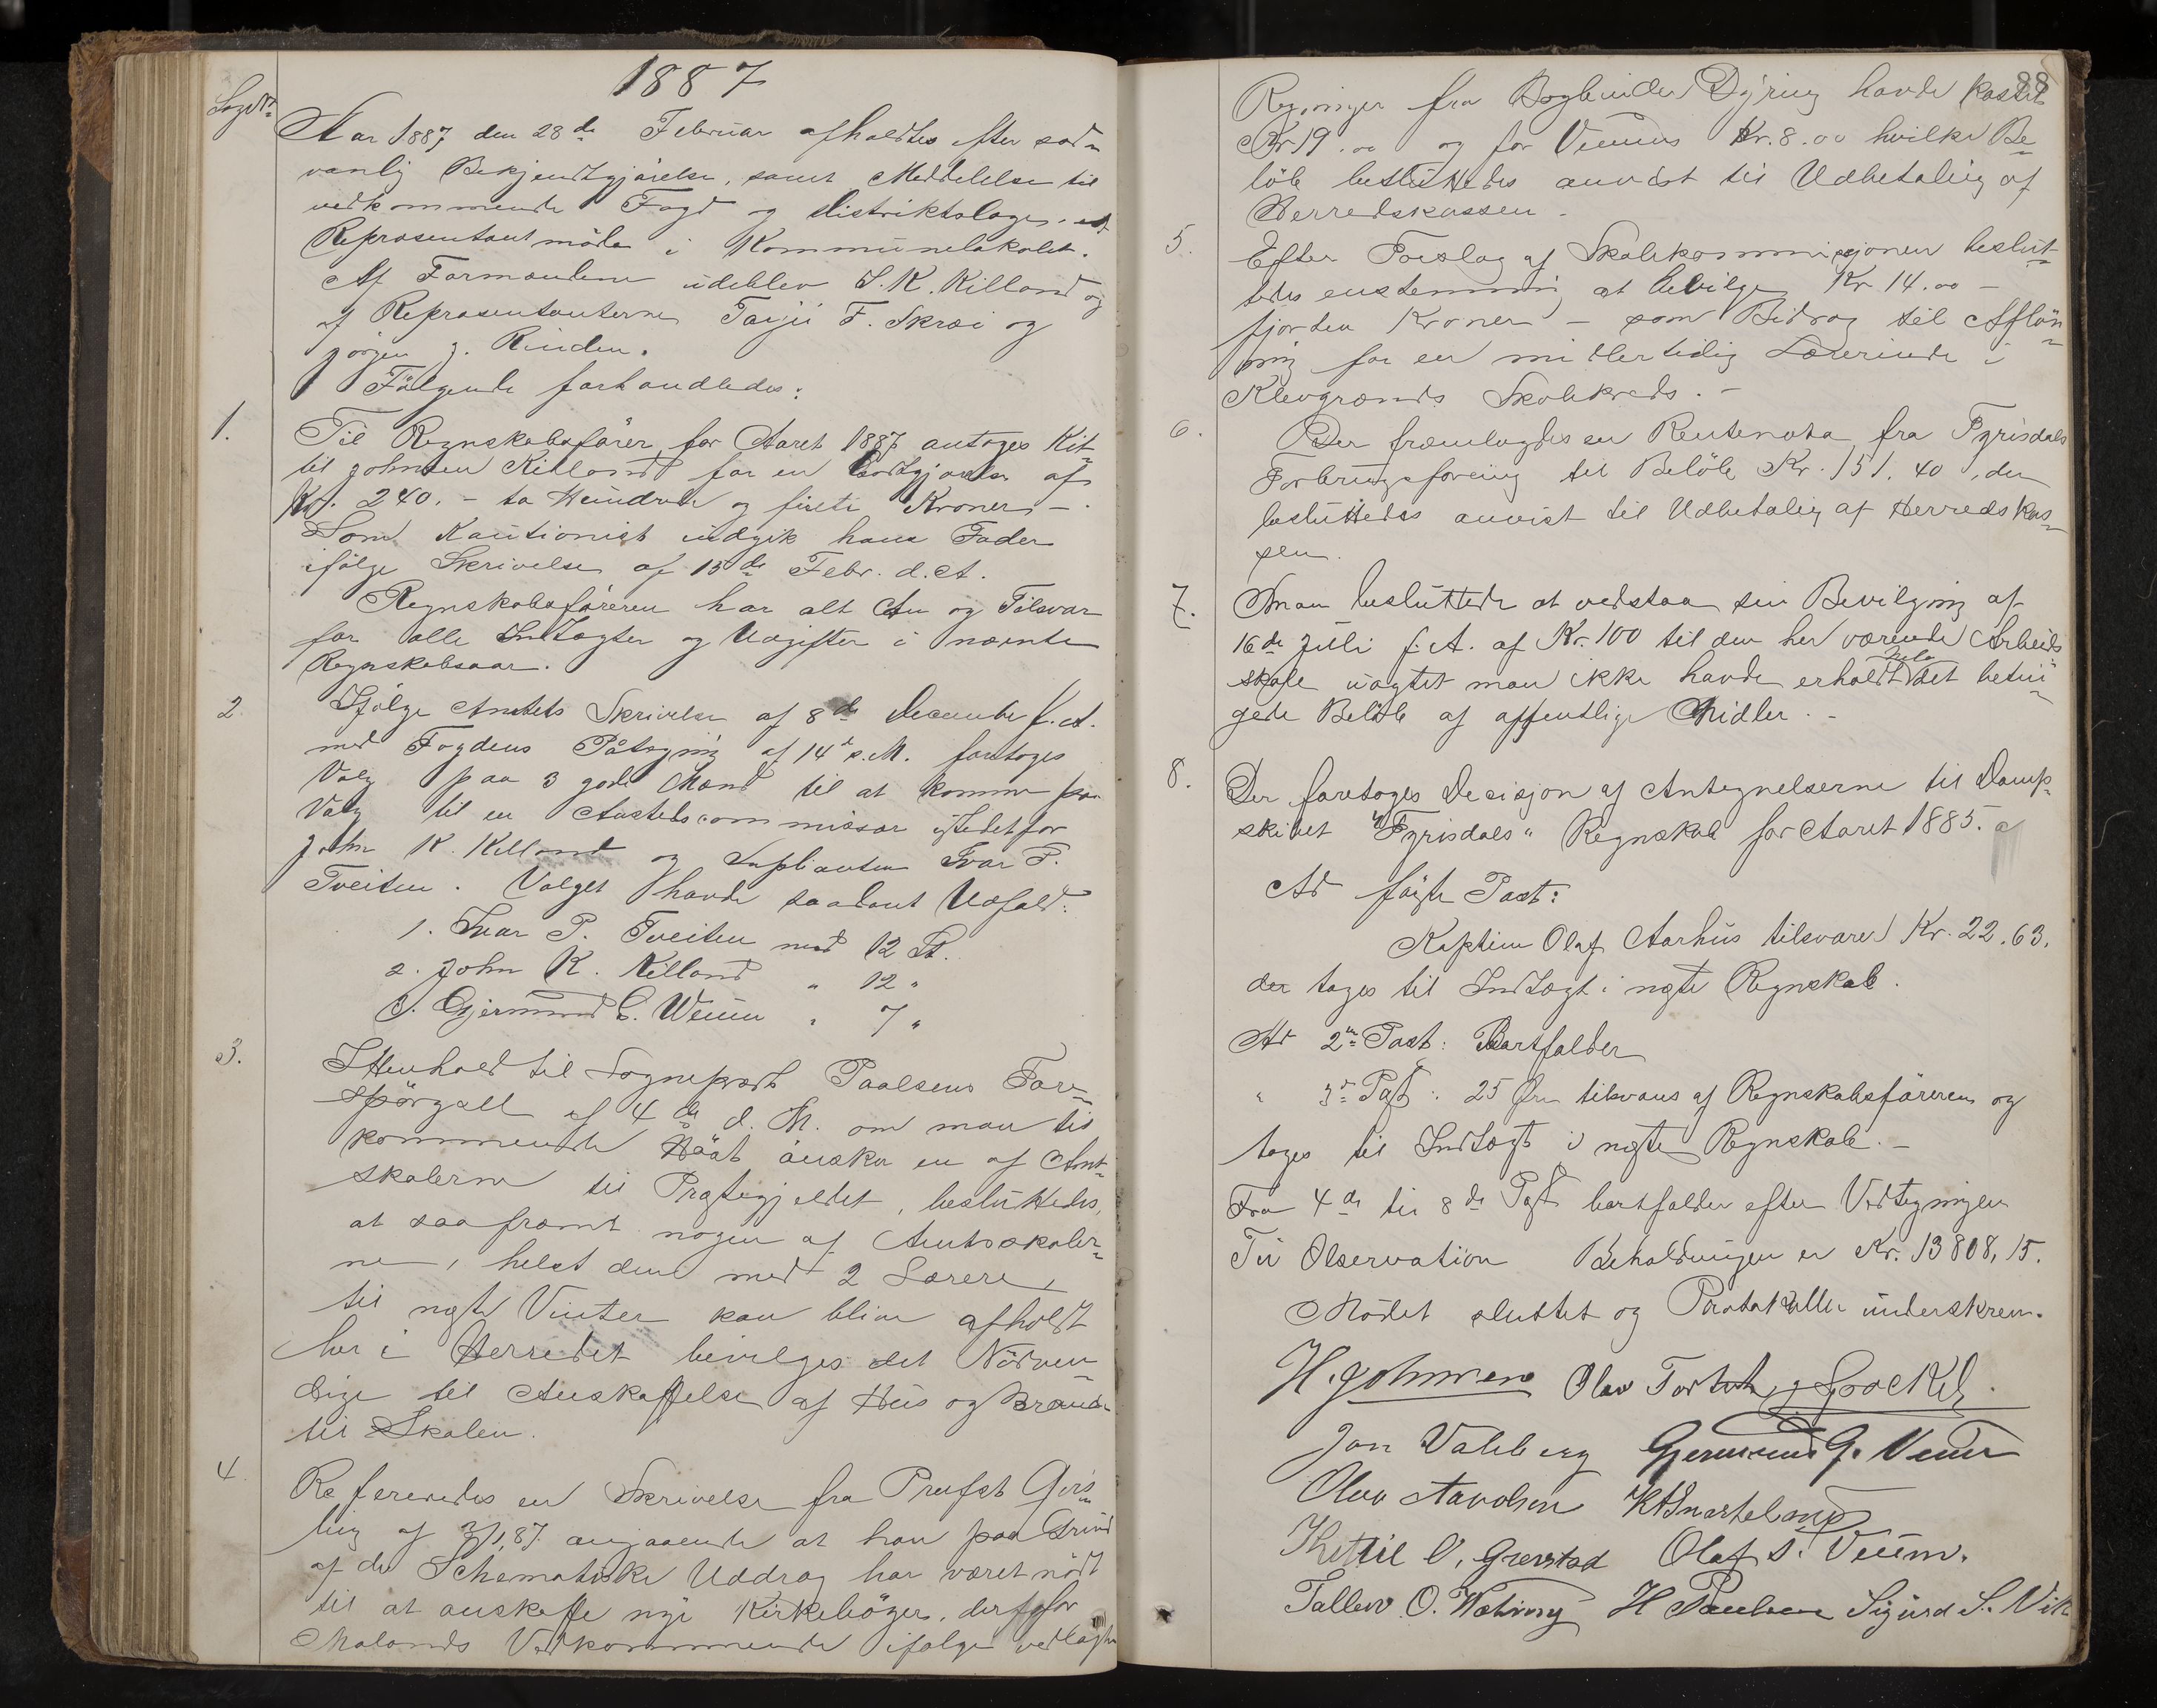 1887
Sag No
Aar 1887 den 28de Februar afholdtes efter sæd-
vanlig Bekjendtgjørelse, samt Meddelelse til
vedkommende Fogd og Distriktslæge, et
Repræsentantmöde i Kommunelokalet.
Af Formændene udeblev J. K. Killand og
af Repræsentanterne Taije F. Skræi og
Jörgen J. Rinden.
Fölgende forhandledes:
1.
Til Regnskabsförer for Aaret 1887 antoges Kit-
til Johnsen Killand for en Godtgjörelse af
Kr. 240. - to Hundrede og fireti Kroner -.
Som Kautionist indgik hans Fader
ifölge Skrivelse af 15de Febr. d. A.
Regnskabsföreren har alt An og Tilsvar
for alle Indtægter og Udgifter i nævnte
Regnskabsaar.
2.
Ifölge Amtets Skrivelse af 8de December f. A.
med Fogdens Påtegning af 14de s. M. foretoges
Valg paa 3 gode Mænd til at komme paa
Valg til en commissær istedetfor
John K. Killand og Suplianten Ivar P.
Tveiten. Valget havde saadant Udfald:
1. Ivar P. Tveiten med 12 St.
2. John K. Killand " 12 "
3. Gjermund G. Weum " 7 "
3.
I Henhold til Sognepræst Paulsens Fore-
spörgsel af 4de d. M. om man til
kommende Höst önsker en af Amt-
skolerne til Præstegjeldet, besluttedes,
at saafremt nogen af Amtsskoler-
ne, helst den med 2 Lærere,
til næste Vinter kan blive afholdt
her i Herredet bevilges det Nödven-
dige til Anskaffelse af Hus og Brænde
til Skolen.
4.
Refereredes en Skrivelse fra Provst Geis-
ling af 3/1 87 angaaende at han paa Grund
af de Schematiske Uddrag har været nödt
til at anskaffe nye Kirkeböger, der for
Molands Vedkommende ifölge vedlagte
88
Regninger fra Bogbinder Dyring havde kostet
Kr 19.00 og for Veums Kr. 8.00 hvilke Be-
löb besluttedes anvist til Udbetaling af
Herredskassen.
5.
Efter Forslag af Skolekommissjonen beslut-
tedes enstemmig at bevilge Kr 14.00 -
fjorten Kroner - som Bidrag til Aflön-
ning for en midlertidig Lærerinde i
Klevgrænds Skolekreds. -
6.
Der fremlagdes en Rentenota fra Fyrisdals
Forbrugsforening til Belöb Kr. 151.40, der
besluttedes anvist til Udbetaling af Herredskas-
sen.
7.
Man besluttede at vedstaa sin Bevilgning af
16de Juli f. A. af Kr. 100 til den her værende Arbeids
skole uagtet man ikke havde erholdt hele det betin-
gede Belöb af offentlige Midler. -
8.
Der foretoges Decisjon af Antegnelserne til Damp-
skibet "Fyrisdals" Regnskab for Aaret 1885.
Ad förste Post:
Kaptein Olaf Aarhus tilsvarer Kr. 22.63.
der tages til Indtægt i næste Regnskab.
Ad 2den Post: Bortfalder
" 3de Post: 25 Øre tilsvares af Regnskabsföreren og
tages til Indtægt i næste Regnskab. -
Fra 4de til 8de Post bortfalder efter Vedtegningen
Til Observation Beholdningen er Kr. 13808,15.
Mödet sluttet og Protokollen underskreven.
H. Johnsen Olav
Jon Valeberg Gjermund G. Veum
Olav Aavolsen K A Snarteland
Kittil O. Grevstad Olaf S. Veum.
Tallev O. Wæhring H Paulsen Sigurd S. Vik